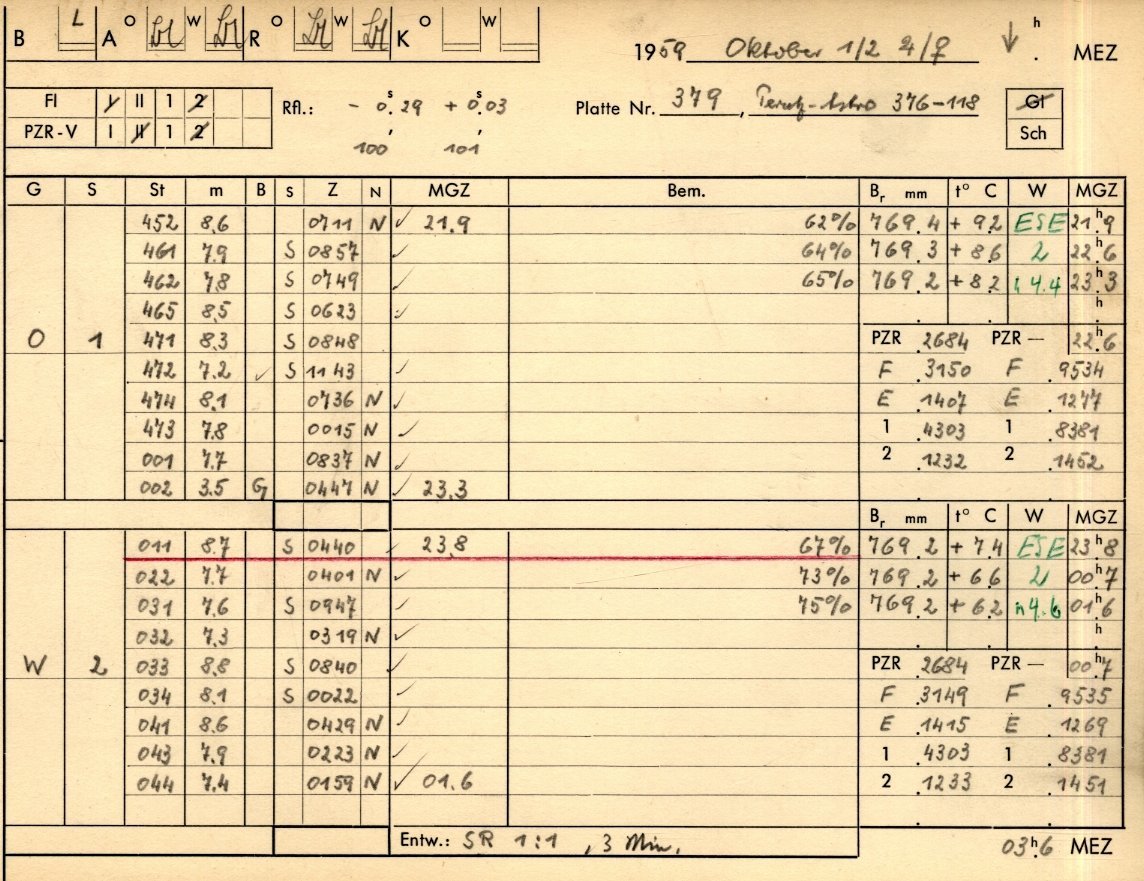 B L A O W R O W K O W
1959 Oktober 1/2 4/♀ h . MEZ
FI I II 1 2
PZR-V I II 1 2
Rfl.: - 0.ˢ29 + 0.ˢ03
100 101
Platte Nr. 379, Perutz-Astro 376-118
Gl
Sch
G S St m B S Z N MGZ Bem. Bᵣ mm t° C W MGZ
452 8.6 0711 N ✓ 21.9 62% 769.4 + 9.2 ESE 21ʰ.9
461 7.9 S 0857 ✓ 64% 769.3 + 8.6 2 22ʰ.6
462 7.8 S 0749 ✓ 65% 769.2 + 8.2 4.4 23ʰ.3
465 8.5 S 0623 ✓ . . h
O 1 471 8.3 S 0848 PZR .2684 PZR – 22ʰ.6
472 7.2 ✓ S 1143 ✓ F .3150 F .9534
474 8.1 0736 N ✓ E .1407 E .1277
473 7.8 0015 N ✓ 1 .4303 1 .8381
001 7.7 0837 N ✓ 2 .1232 2 .1452
002 3.5 G 0447 N ✓ 23.3
Bᵣ mm t° C W MGZ
011 8.7 S 0440 ✓ 23.8 67% 769.2 + 7.4 ESE 23ʰ.8
022 7.7 0401 N ✓ 73% 769.2 + 6.6 2 00ʰ.7
031 7.6 S 0947 ✓ 75% 769.2 + 6.2 n 4.6 01ʰ.6
032 7.3 0319 N ✓ . . h
W 2 033 8.8 S 0840 ✓ PZR .2684 PZR – 00ʰ.7
034 8.1 S 0022 ✓ F .3149 F .9535
041 8.6 0429 N ✓ E .1415 E .1269
043 7.9 0223 N ✓ 1 .4303 1 .8381
044 7.4 0159 N ✓ 01.6 2 .1233 2 .1451
Entw.: SR 1:1 , 3 Min. 03ʰ.6 MEZ